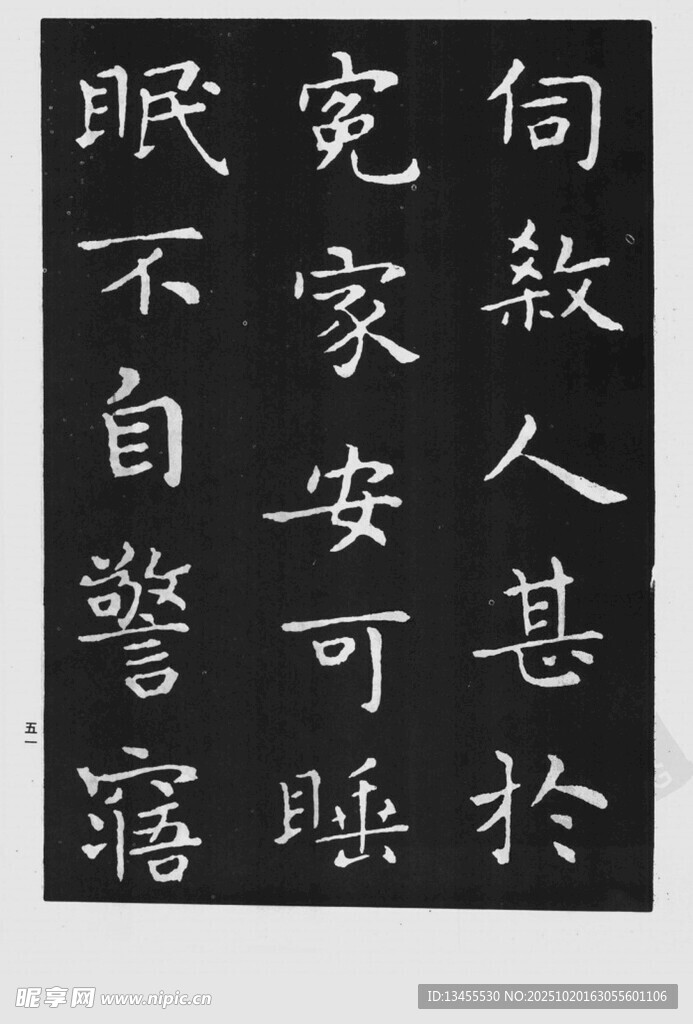 伺殺人甚於
冤家安可睡
眠不自警寤
五一
昵享网 www.nipic.cn
ID:13455530 NO:20251020163055601106